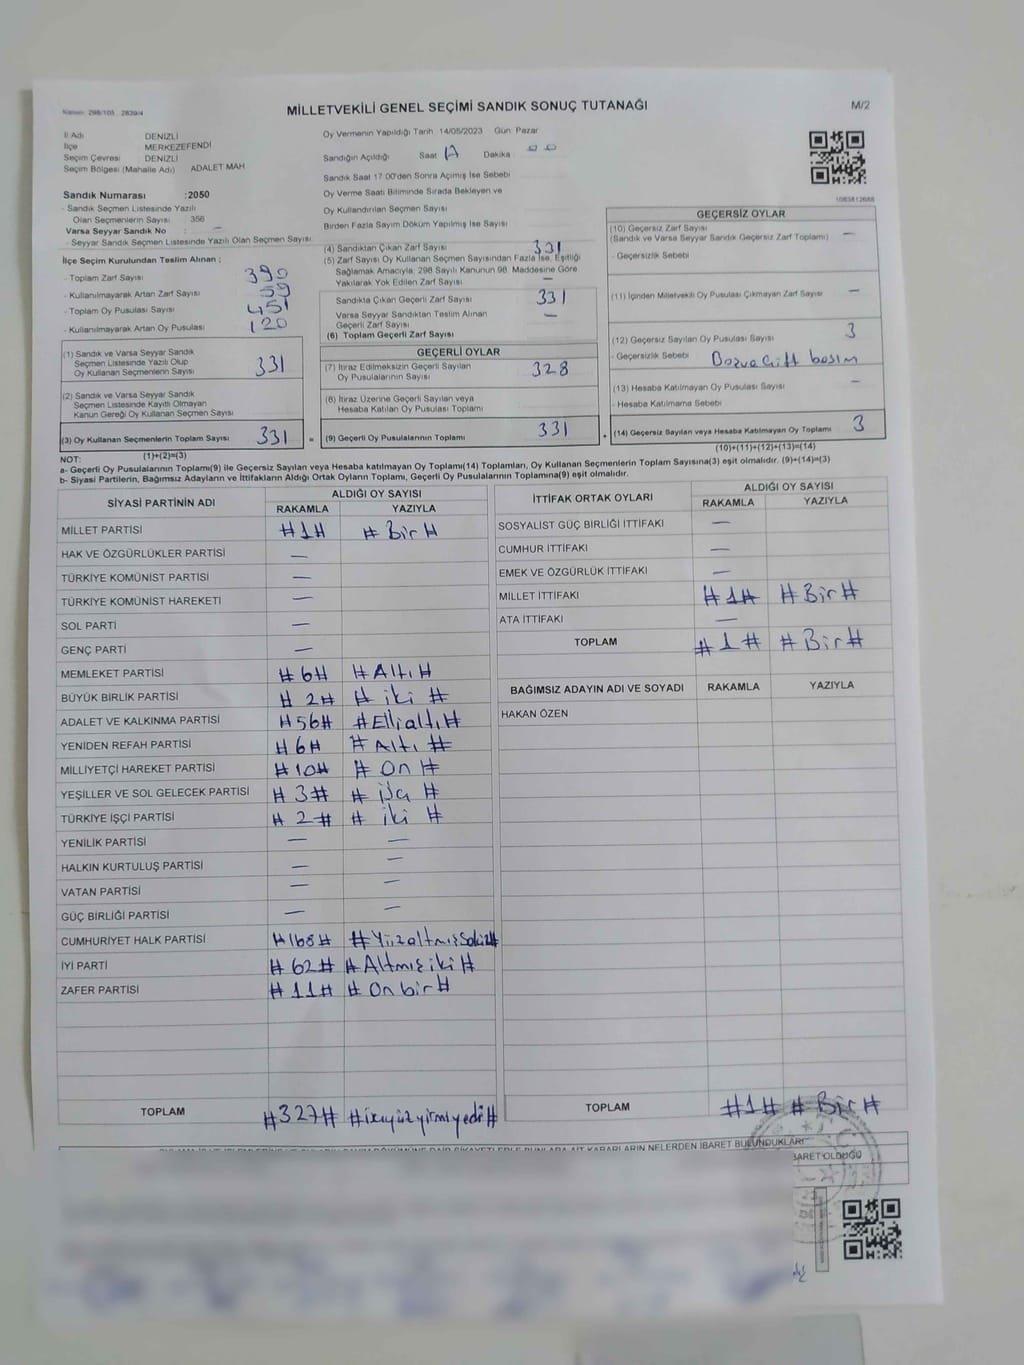 Kanun: 298/105 2839/4
MİLLETVEKİLİ GENEL SEÇİMİ SANDIK SONUÇ TUTANAĞI
M/2
İl Adı DENİZLİ
İlçe MERKEZEFENDİ
Seçim Çevresi DENİZLİ
Seçim Bölgesi (Mahalle Adı) ADALET MAH
Sandık Numarası :2050
- Sandık Seçmen Listesinde Yazılı
Olan Seçmenlerin Sayısı 356
Varsa Seyyar Sandık No –
- Seyyar Sandık Seçmen Listesinde Yazılı Olan Seçmen Sayısı
İlçe Seçim Kurulundan Teslim Alınan :
- Toplam Zarf Sayısı 390
- Kullanılmayarak Artan Zarf Sayısı 59
- Toplam Oy Pusulası Sayısı 451
- Kullanılmayarak Artan Oy Pusulası 120
(1) Sandık ve Varsa Seyyar Sandık
Seçmen Listesinde Yazılı Olup
Oy Kullanan Seçmenlerin Sayısı 331
(2) Sandık ve Varsa Seyyar Sandık
Seçmen Listesinde Kayıtlı Olmayan
Kanun Gereği Oy Kullanan Seçmen Sayısı
(3) Oy Kullanan Seçmenlerin Toplam Sayısı 331 =
(1)+(2)=(3)
Oy Vermenin Yapıldığı Tarih 14/05/2023 Gün Pazar
Sandığın Açıldığı Saat Dakika
Sandık Saat 17.00'den Sonra Açılmış İse Sebebi
Oy Verme Saati Bitiminde Sırada Bekleyen ve
Oy Kullandırılan Seçmen Sayısı
Birden Fazla Sayım Döküm Yapılmış İse Sayısı
(4) Sandıktan Çıkan Zarf Sayısı 331
(5) Zarf Sayısı Oy Kullanan Seçmen Sayısından Fazla İse, Eşitliği
Sağlamak Amacıyla, 298 Sayılı Kanunun 98. Maddesine Göre
Yakılarak Yok Edilen Zarf Sayısı –
Sandıkta Çıkan Geçerli Zarf Sayısı 331
Varsa Seyyar Sandıktan Teslim Alınan
Geçerli Zarf Sayısı –
(6) Toplam Geçerli Zarf Sayısı
GEÇERLİ OYLAR
(7) İtiraz Edilmeksizin Geçerli Sayılan
Oy Pusulalarının Sayısı 328
(8) İtiraz Üzerine Geçerli Sayılan veya
Hesaba Katılan Oy Pusulası Toplamı
(9) Geçerli Oy Pusulalarının Toplamı 331 +
1083812688
GEÇERSİZ OYLAR
(10) Geçersiz Zarf Sayısı
(Sandık ve Varsa Seyyar Sandık Geçersiz Zarf Toplamı) –
- Geçersizlik Sebebi
(11) İçinden Milletvekili Oy Pusulası Çıkmayan Zarf Sayısı –
(12) Geçersiz Sayılan Oy Pusulası Sayısı 3
- Geçersizlik Sebebi
(13) Hesaba Katılmayan Oy Pusulası Sayısı –
- Hesaba Katılmama Sebebi
(14) Geçersiz Sayılan veya Hesaba Katılmayan Oy Toplamı 3
(10)+(11)+(12)+(13)=(14)
NOT:
a- Geçerli Oy Pusulalarının Toplamı(9) ile Geçersiz Sayılan veya Hesaba katılmayan Oy Toplamı(14) Toplamları, Oy Kullanan Seçmenlerin Toplam Sayısına(3) eşit olmalıdır. (9)+(14)=(3)
b- Siyasi Partilerin, Bağımsız Adayların ve İttifakların Aldığı Ortak Oyların Toplamı, Geçerli Oy Pusulalarının Toplamına(9) eşit olmalıdır.
SİYASİ PARTİNİN ADI ALDIĞI OY SAYISI
RAKAMLA YAZIYLA
MİLLET PARTİSİ #1# #Bir#
HAK VE ÖZGÜRLÜKLER PARTİSİ –
TÜRKİYE KOMÜNİST PARTİSİ –
TÜRKİYE KOMÜNİST HAREKETİ –
SOL PARTİ –
GENÇ PARTİ –
MEMLEKET PARTİSİ #6# #Altı#
BÜYÜK BİRLİK PARTİSİ #2# #iki#
ADALET VE KALKINMA PARTİSİ #56# #Elli altı#
YENİDEN REFAH PARTİSİ #6# #Altı#
MİLLİYETÇİ HAREKET PARTİSİ #10# #On#
YEŞİLLER VE SOL GELECEK PARTİSİ #3# #üç#
TÜRKİYE İŞÇİ PARTİSİ #2# #iki#
YENİLİK PARTİSİ – –
HALKIN KURTULUŞ PARTİSİ – –
VATAN PARTİSİ – –
GÜÇ BİRLİĞİ PARTİSİ – –
CUMHURİYET HALK PARTİSİ #168# #YüzaltmışSekiz#
İYİ PARTİ #62# #Altmış iki#
ZAFER PARTİSİ #11# #On bir#
TOPLAM #327# #ikiyüzyirmiyedi#
İTTİFAK ORTAK OYLARI ALDIĞI OY SAYISI
RAKAMLA YAZIYLA
SOSYALİST GÜÇ BİRLİĞİ İTTİFAKI –
CUMHUR İTTİFAKI –
EMEK VE ÖZGÜRLÜK İTTİFAKI –
MİLLET İTTİFAKI #1# #Bir#
ATA İTTİFAKI –
TOPLAM #1# #Bir#
BAĞIMSIZ ADAYIN ADI VE SOYADI RAKAMLA YAZIYLA
HAKAN ÖZEN
TOPLAM #1# #Bir#
KARARLARIN NELERDEN İBARET BULUNDUKLARI
BARET OLDUĞU